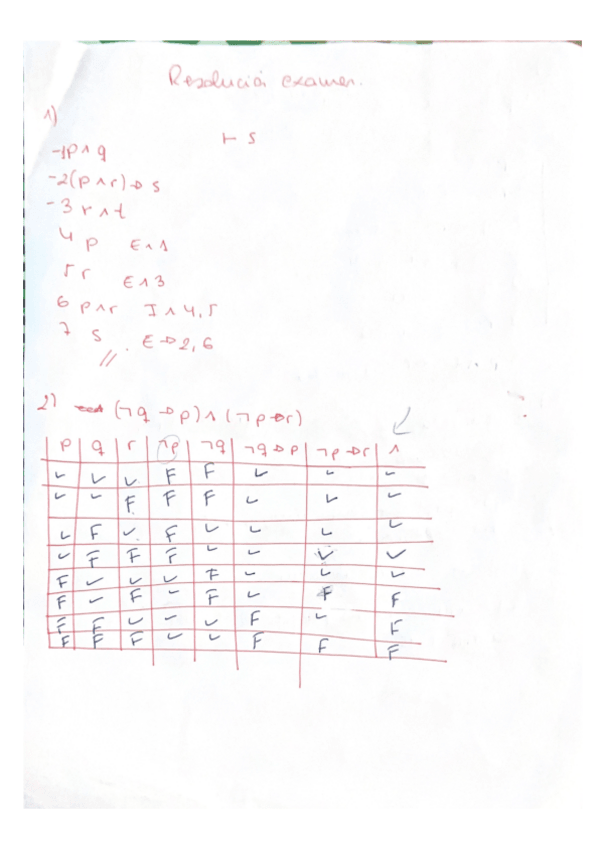 Resolució examen.
1)
⊢ s
-1 p ∧ q
-2 (p ∧ r) → s
-3 r ∧ t
4 p E∧1
5 r E∧3
6 p∧r I∧4,5
7 s E→2,6
//
2) (¬q → p) ∧ (¬p → r)
p q r ¬p ¬q ¬q → p ¬p → r ∧
v v v F F v v v
v v F F F v v v
v F v F v v v v
v F F F v v v v
F v v v F v v v
F v F v F v F F
F F v v v F v F
F F F v v F F F